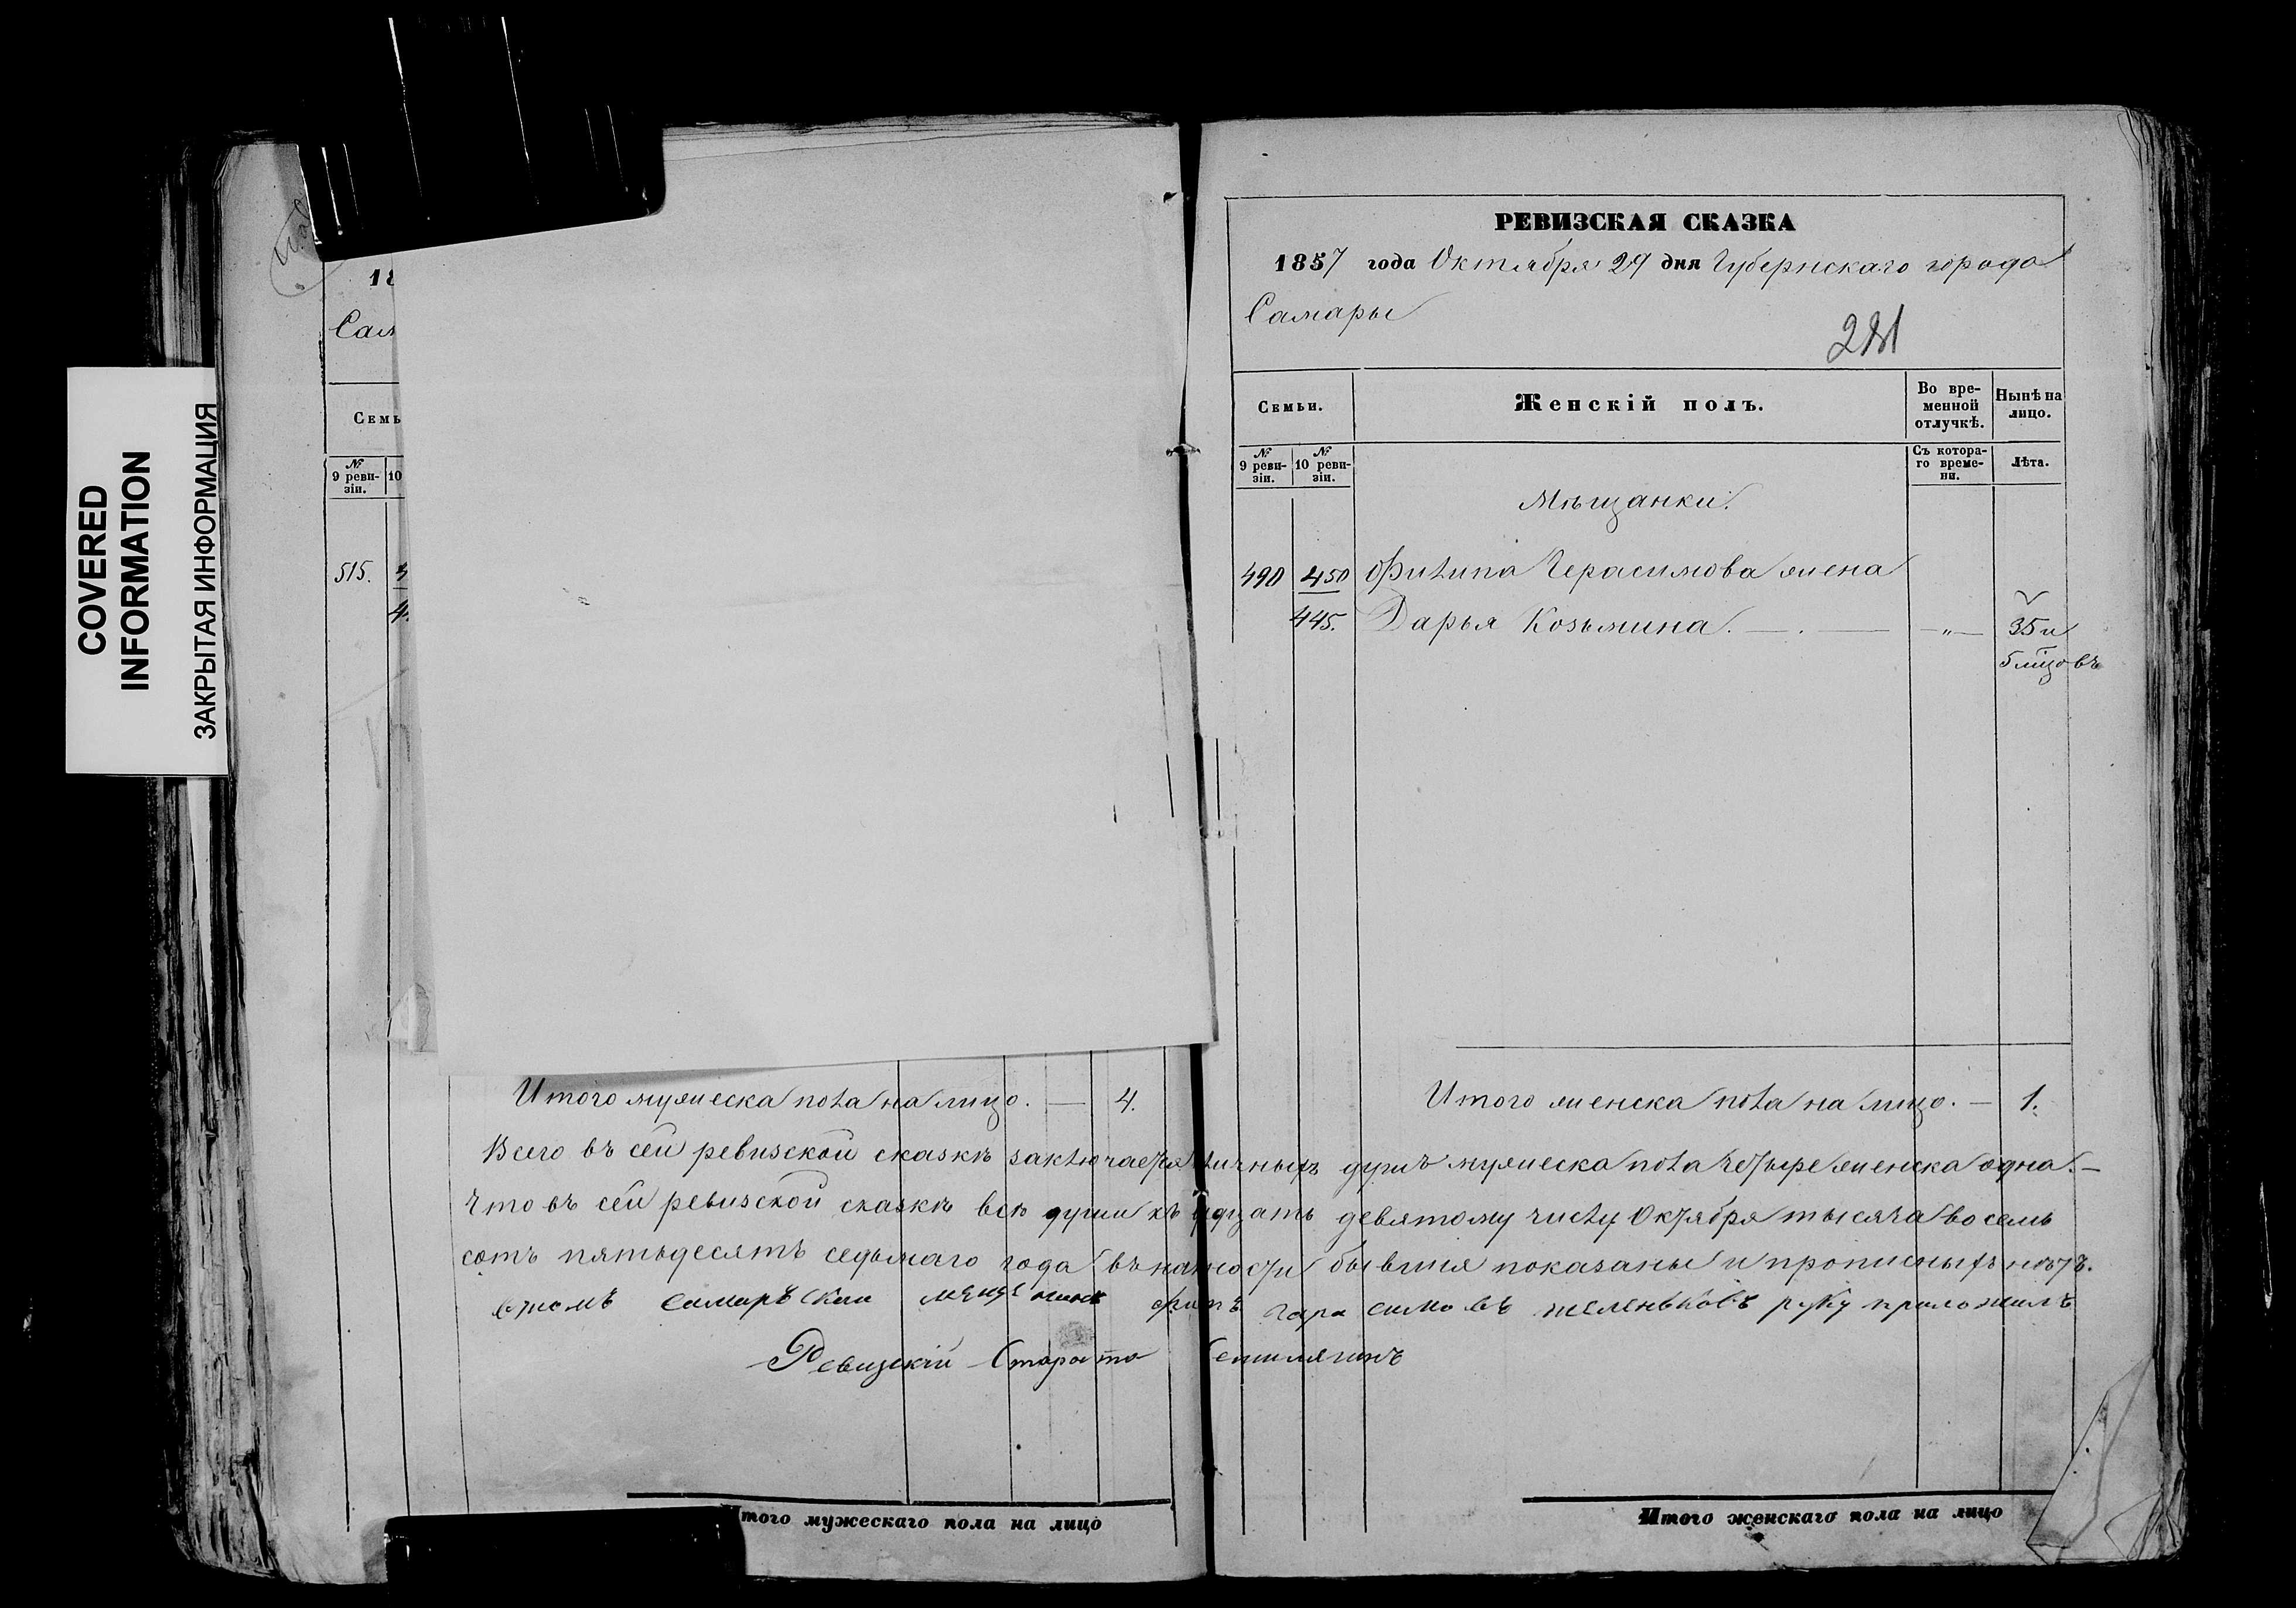 COVERED
INFORMATION
ЗАКРЫТАЯ ИНФОРМАЦИЯ
18
Сам
Семь
№
9 реви-
зіи.
10
515.
4
4
Итого мужеска пола на лицо. — 4.
РЕВИЗСКАЯ СКАЗКА
1857 года Октября 29 дня Губернскаго города
Самары
Семьи.
Женскій полъ.
Во вре-
менной
отлучкѣ.
Нынѣ на
лицо.
№
9 реви-
зіи.
№
10 реви-
зіи.
Съ котора-
го време-
ни.
Лѣта.
Мѣщанки.
490 450 Филипа Герасимова жена
445. Дарья Козьмина. — . — — „ — 35 и
5 мѣсцовъ
Итого женска пола на лицо. — 1.
Всего въ сей ревизской сказкѣ заключается личныхъ душъ мужеска пола четыре женска одна. —
Что въ сей ревизской сказкѣ всѣ души къ дцать девятому числу Октября тысяча восемь
сотъ пятьдесятъ седьмаго года въ налости бывшия показаны и прописныхъ нѣтъ.
самаръскаи гара симовъ руку приложилъ
Ревизскій Староста
того мужескаго пола на лицо
Итого женскаго пола на лицо